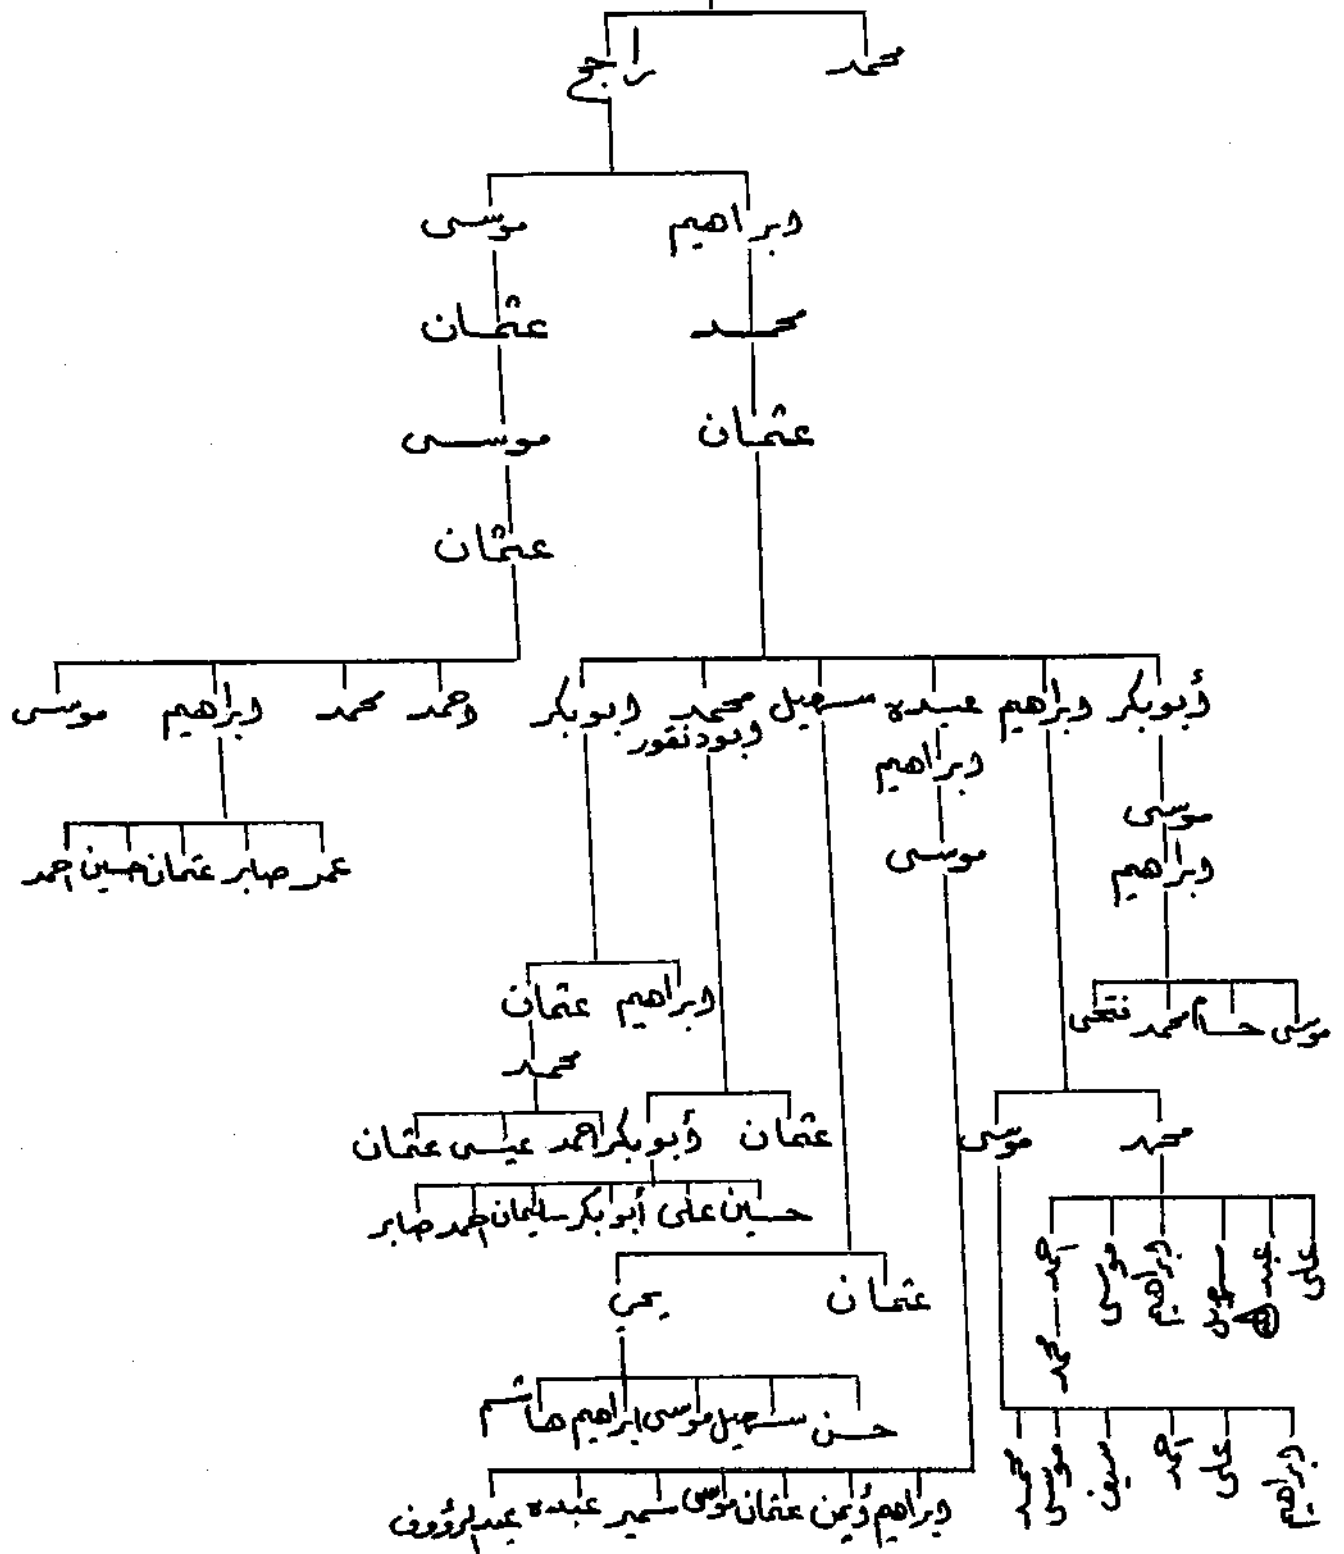 محمد راجح
ابراهيم موسى
محمد عثمان
عثمان موسى
عثمان
أبوبكر ابراهيم عبده سهيل محمد ابوبكر احمد محمد ابراهيم موسى
ابراهيم ابودنقور
موسى
موسى
ابراهيم
عمر صابر عثمان حسين احمد
موسى حسام محمد فتحى
ابراهيم عثمان
محمد
محمد موسى
عثمان أبوبكر احمد عيسى عثمان
حسين على أبوبكر سليمان احمد صابر
على عبده سهيل ابراهيم موسى احمد محمد
عثمان يحي
حسن سهيل موسى ابراهيم هاشم
ابراهيم على احمد سيف موسى محمد
ابراهيم أيمن عثمان موسى سمير عبده عبدالرؤوف